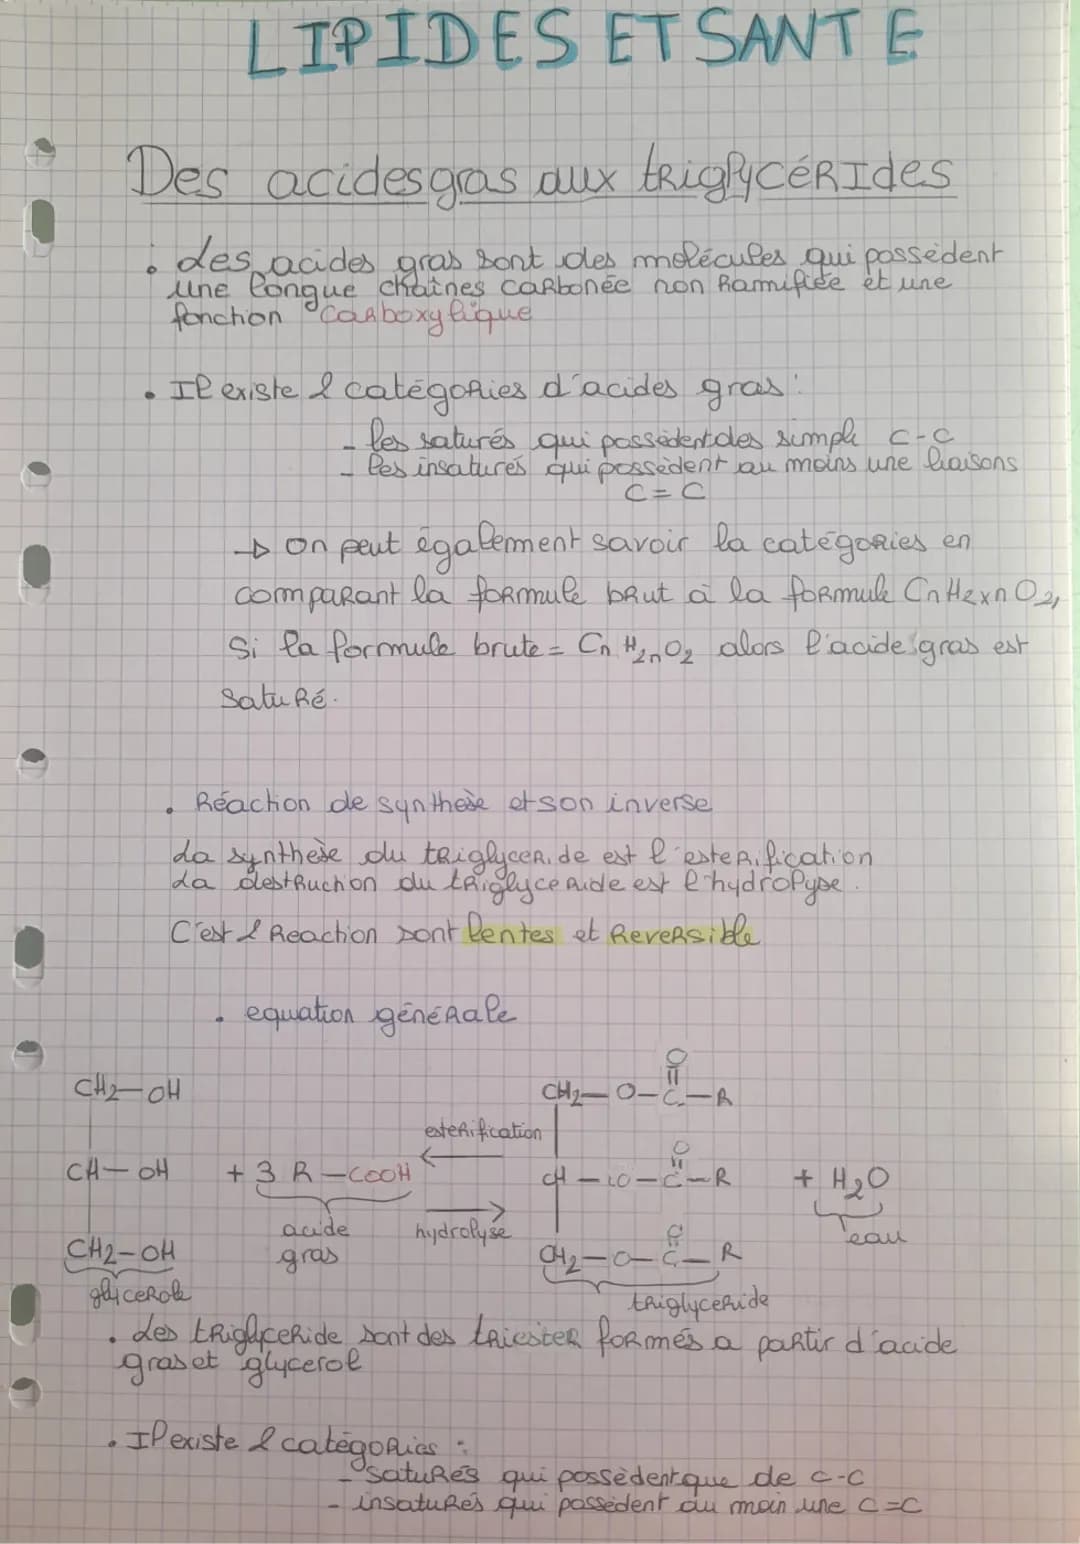 LIPIDES ET SANTE
Des acides gras aux triglycérides
• Les acides gras sont des molécules qui possèdent
une longue chaînes carbonée non Ramifiée et une
fonction carboxylique
• Il existe 2 catégories d'acides gras :
- les saturés qui possèdent des simple C-C
- les insaturés qui possèdent au moins une liaisons
C=C
→ On peut également savoir la catégories en
comparant la formule brut à la formule CnH2xnO2,
Si la formule brute = CnH2nO2 alors l'acide gras est
Saturé.
• Réaction de synthèse et son inverse
La synthèse du triglyceride est l'esterification
La destruction du triglyceride est l'hydrolyse.
C'est 2 Reaction sont lentes et Reversible
• equation générale
CH2-OH
CH2-O-C-R
O
esterification
CH-OH + 3 R-COOH
CH-O-C-R + H2O
O
acide
gras
hydrolyse
eau
CH2-OH
CH2-O-C-R
O
glycerole
triglyceride
• Les triglyceride sont des triester formés a partir d'acide
gras et glycerol
• Il existe 2 catégories :
- saturés qui possèdent que de C-C
- insaturés qui possèdent au moin une C=C